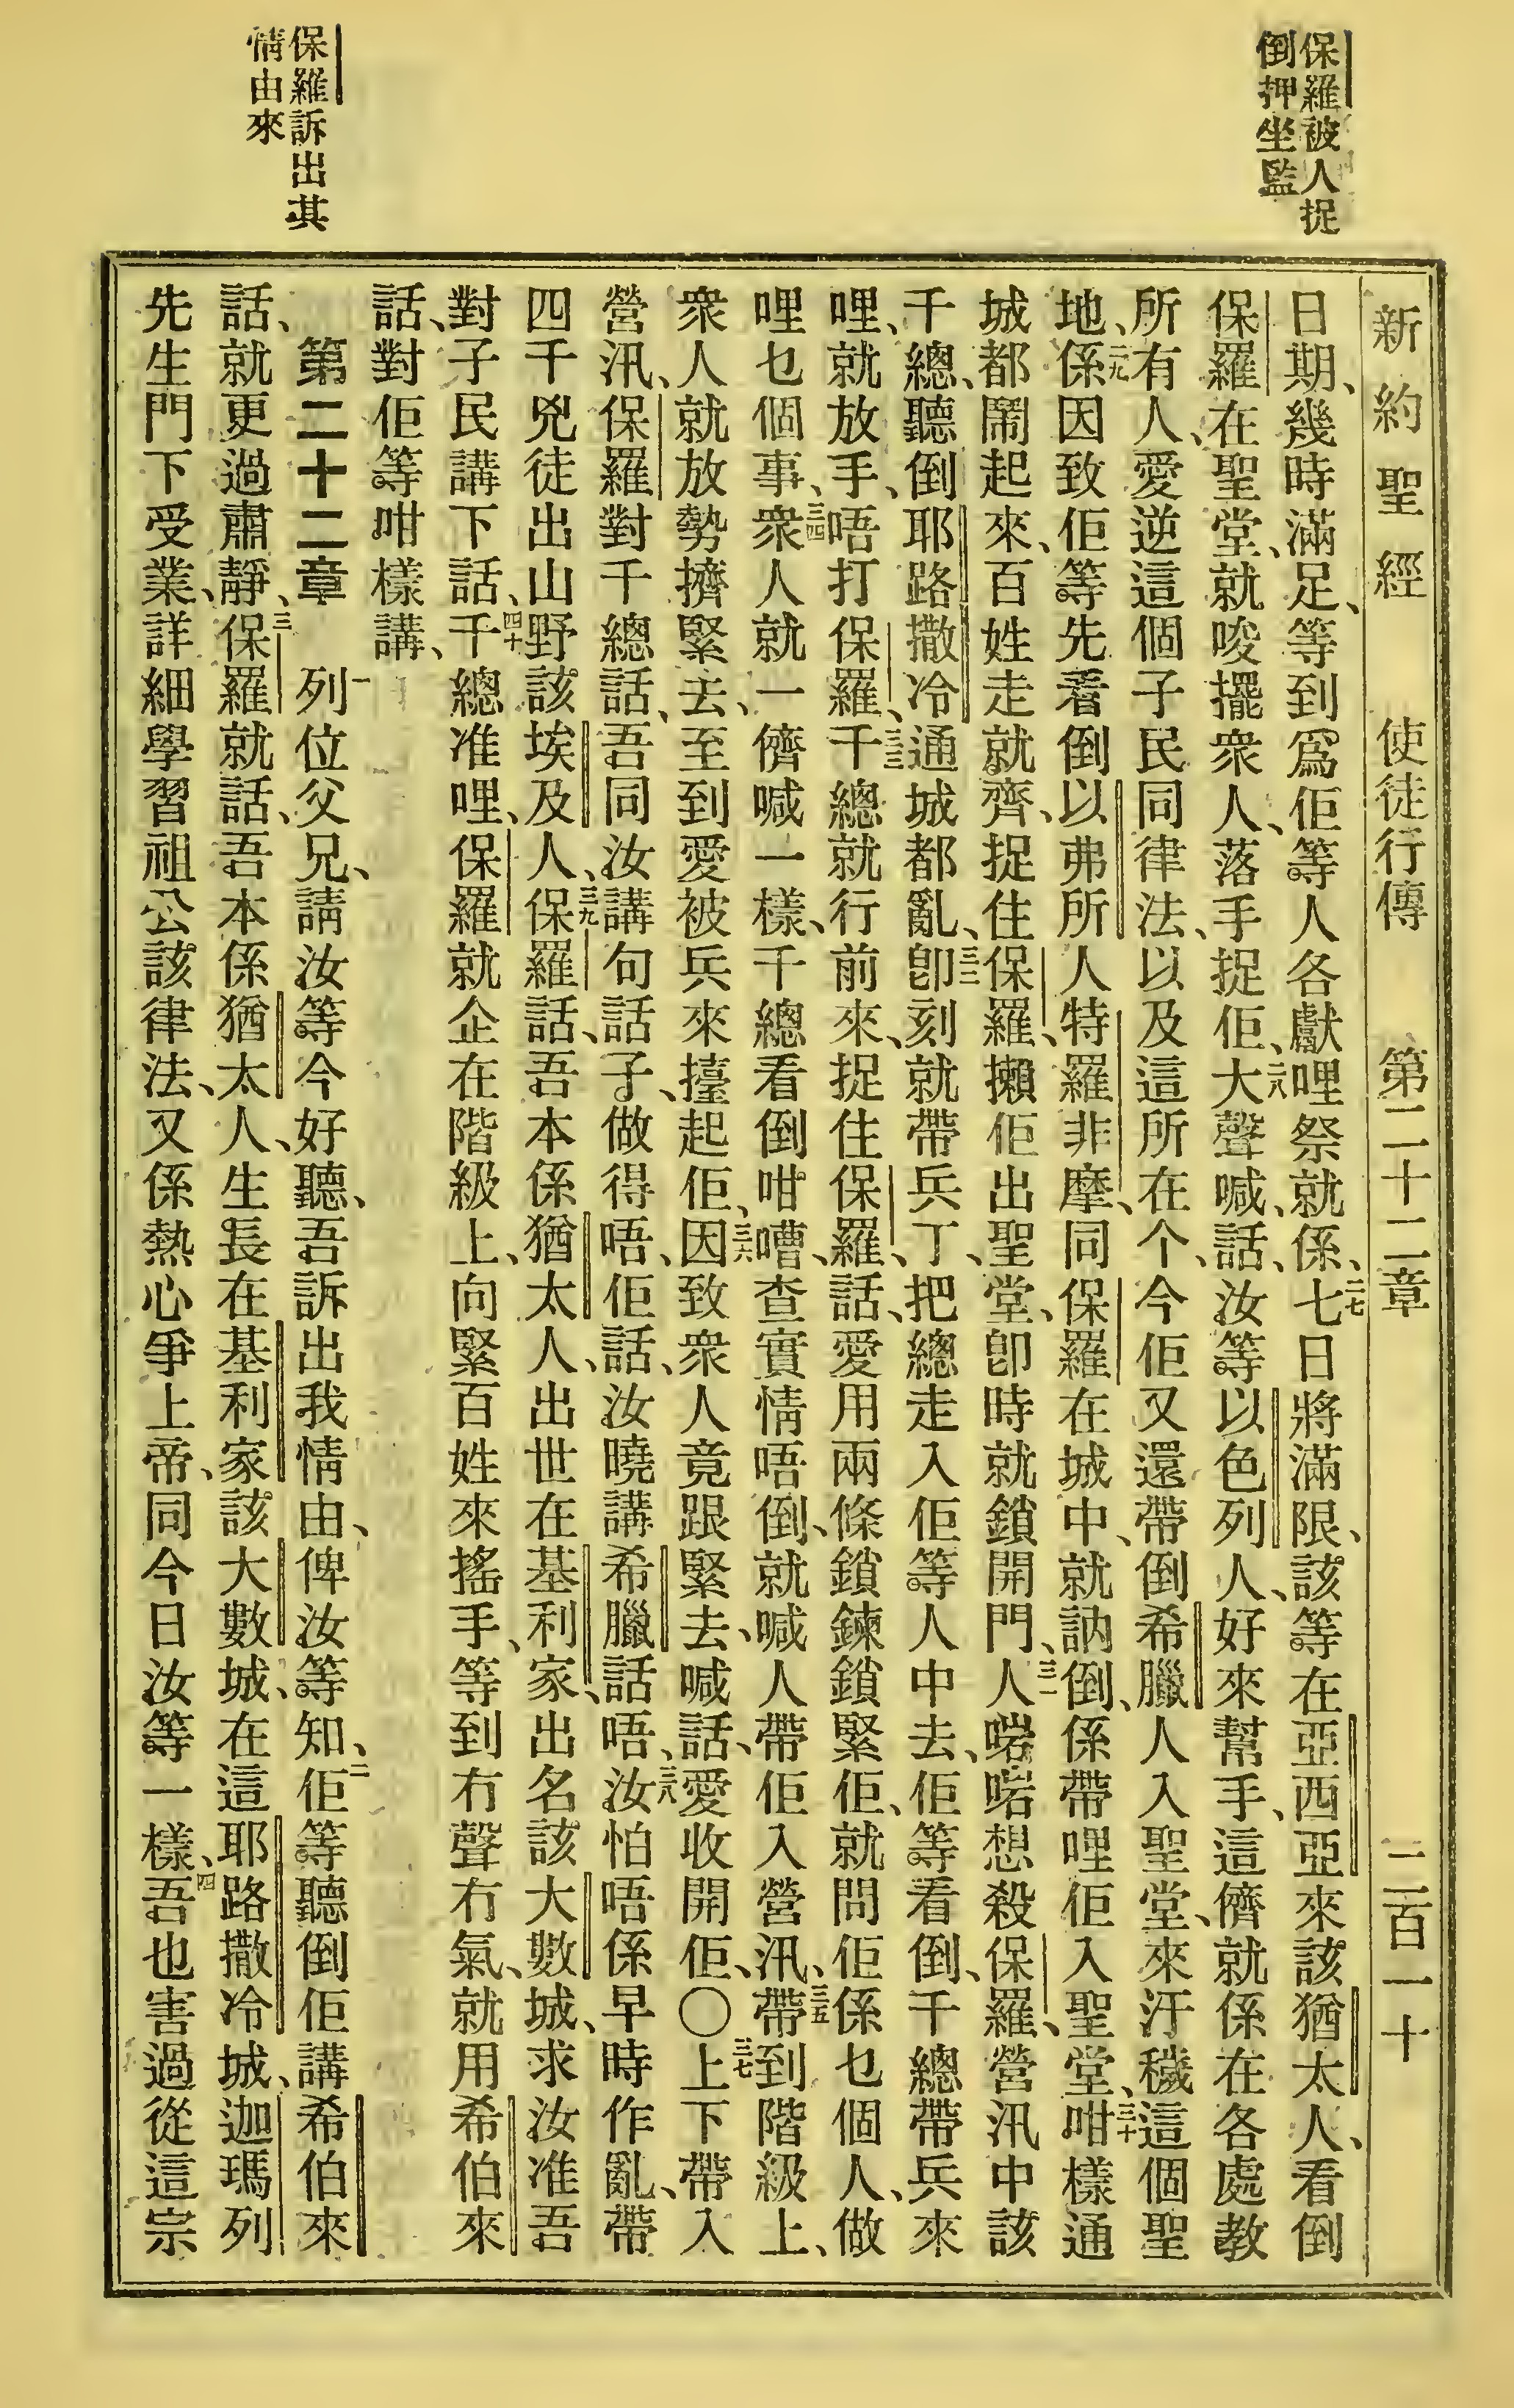 保羅被人捉
倒押坐監
保羅訴出其
情由來
新約聖經 使徒行傳 第二十二章 二百一十
日期、幾時滿足、等到爲佢等人各獻哩祭就係、二七七日將滿限、該等在亞西亞來該猶太人、看倒
保羅在聖堂、就唆擺衆人、落手捉佢、二八大聲喊、話、汝等以色列人、好來幫手、這儕就係在各處教
所有人、愛逆這個子民同律法、以及這所在个、今佢又還帶倒希臘人入聖堂、來汙穢這個聖
地、二九係因致佢等先看倒以弗所人特羅非摩、同保羅在城中、就訥倒、係帶哩佢入聖堂、三十咁樣通
城都鬧起來、百姓走就齊、捉住保羅、攋佢出聖堂、卽時就鎖開門、三一人啱啱想殺保羅、營汛中該
千總、聽倒耶路撒冷通城都亂、三二卽刻就帶兵丁、把總走入佢等人中去、佢等看倒、千總帶兵來
哩、就放手、唔打保羅、三三千總就行前來、捉住保羅、話、愛用兩條鎖鍊鎖緊佢、就問佢係乜個人、做
哩乜個事、三四衆人就一儕喊一樣、千總看倒咁嘈、查實情唔倒、就喊人帶佢入營汛、三五帶到階級上、
衆人就放勢擠緊去、至到愛被兵來擡起佢、三六因致衆人竟跟緊去、喊話、愛收開佢、〇三七上下帶入
營汛、保羅對千總話、吾同汝講句話子、做得唔、佢話、汝曉講希臘話唔、三八汝怕唔係早時作亂、帶
四千兇徒出山野該埃及人、三九保羅話、吾本係猶太人、出世在基利家、出名該大數城、求汝准吾
對子民講下話、四十千總准哩、保羅就企在階級上、向緊百姓來搖手、等到冇聲冇氣、就用希伯來
話、對佢等咁樣講、
第二十二章 一列位父兄、請汝等今好聽、吾訴出我情由、俾汝等知、二佢等聽倒佢講希伯來
話、就更過肅靜、三保羅就話、吾本係猶太人、生長在基利家該大數城、在這耶路撒冷城、迦瑪列
先生門下受業、詳細學習祖公該律法、又係熱心爭上帝、同今日汝等一樣、四吾也害過從這宗